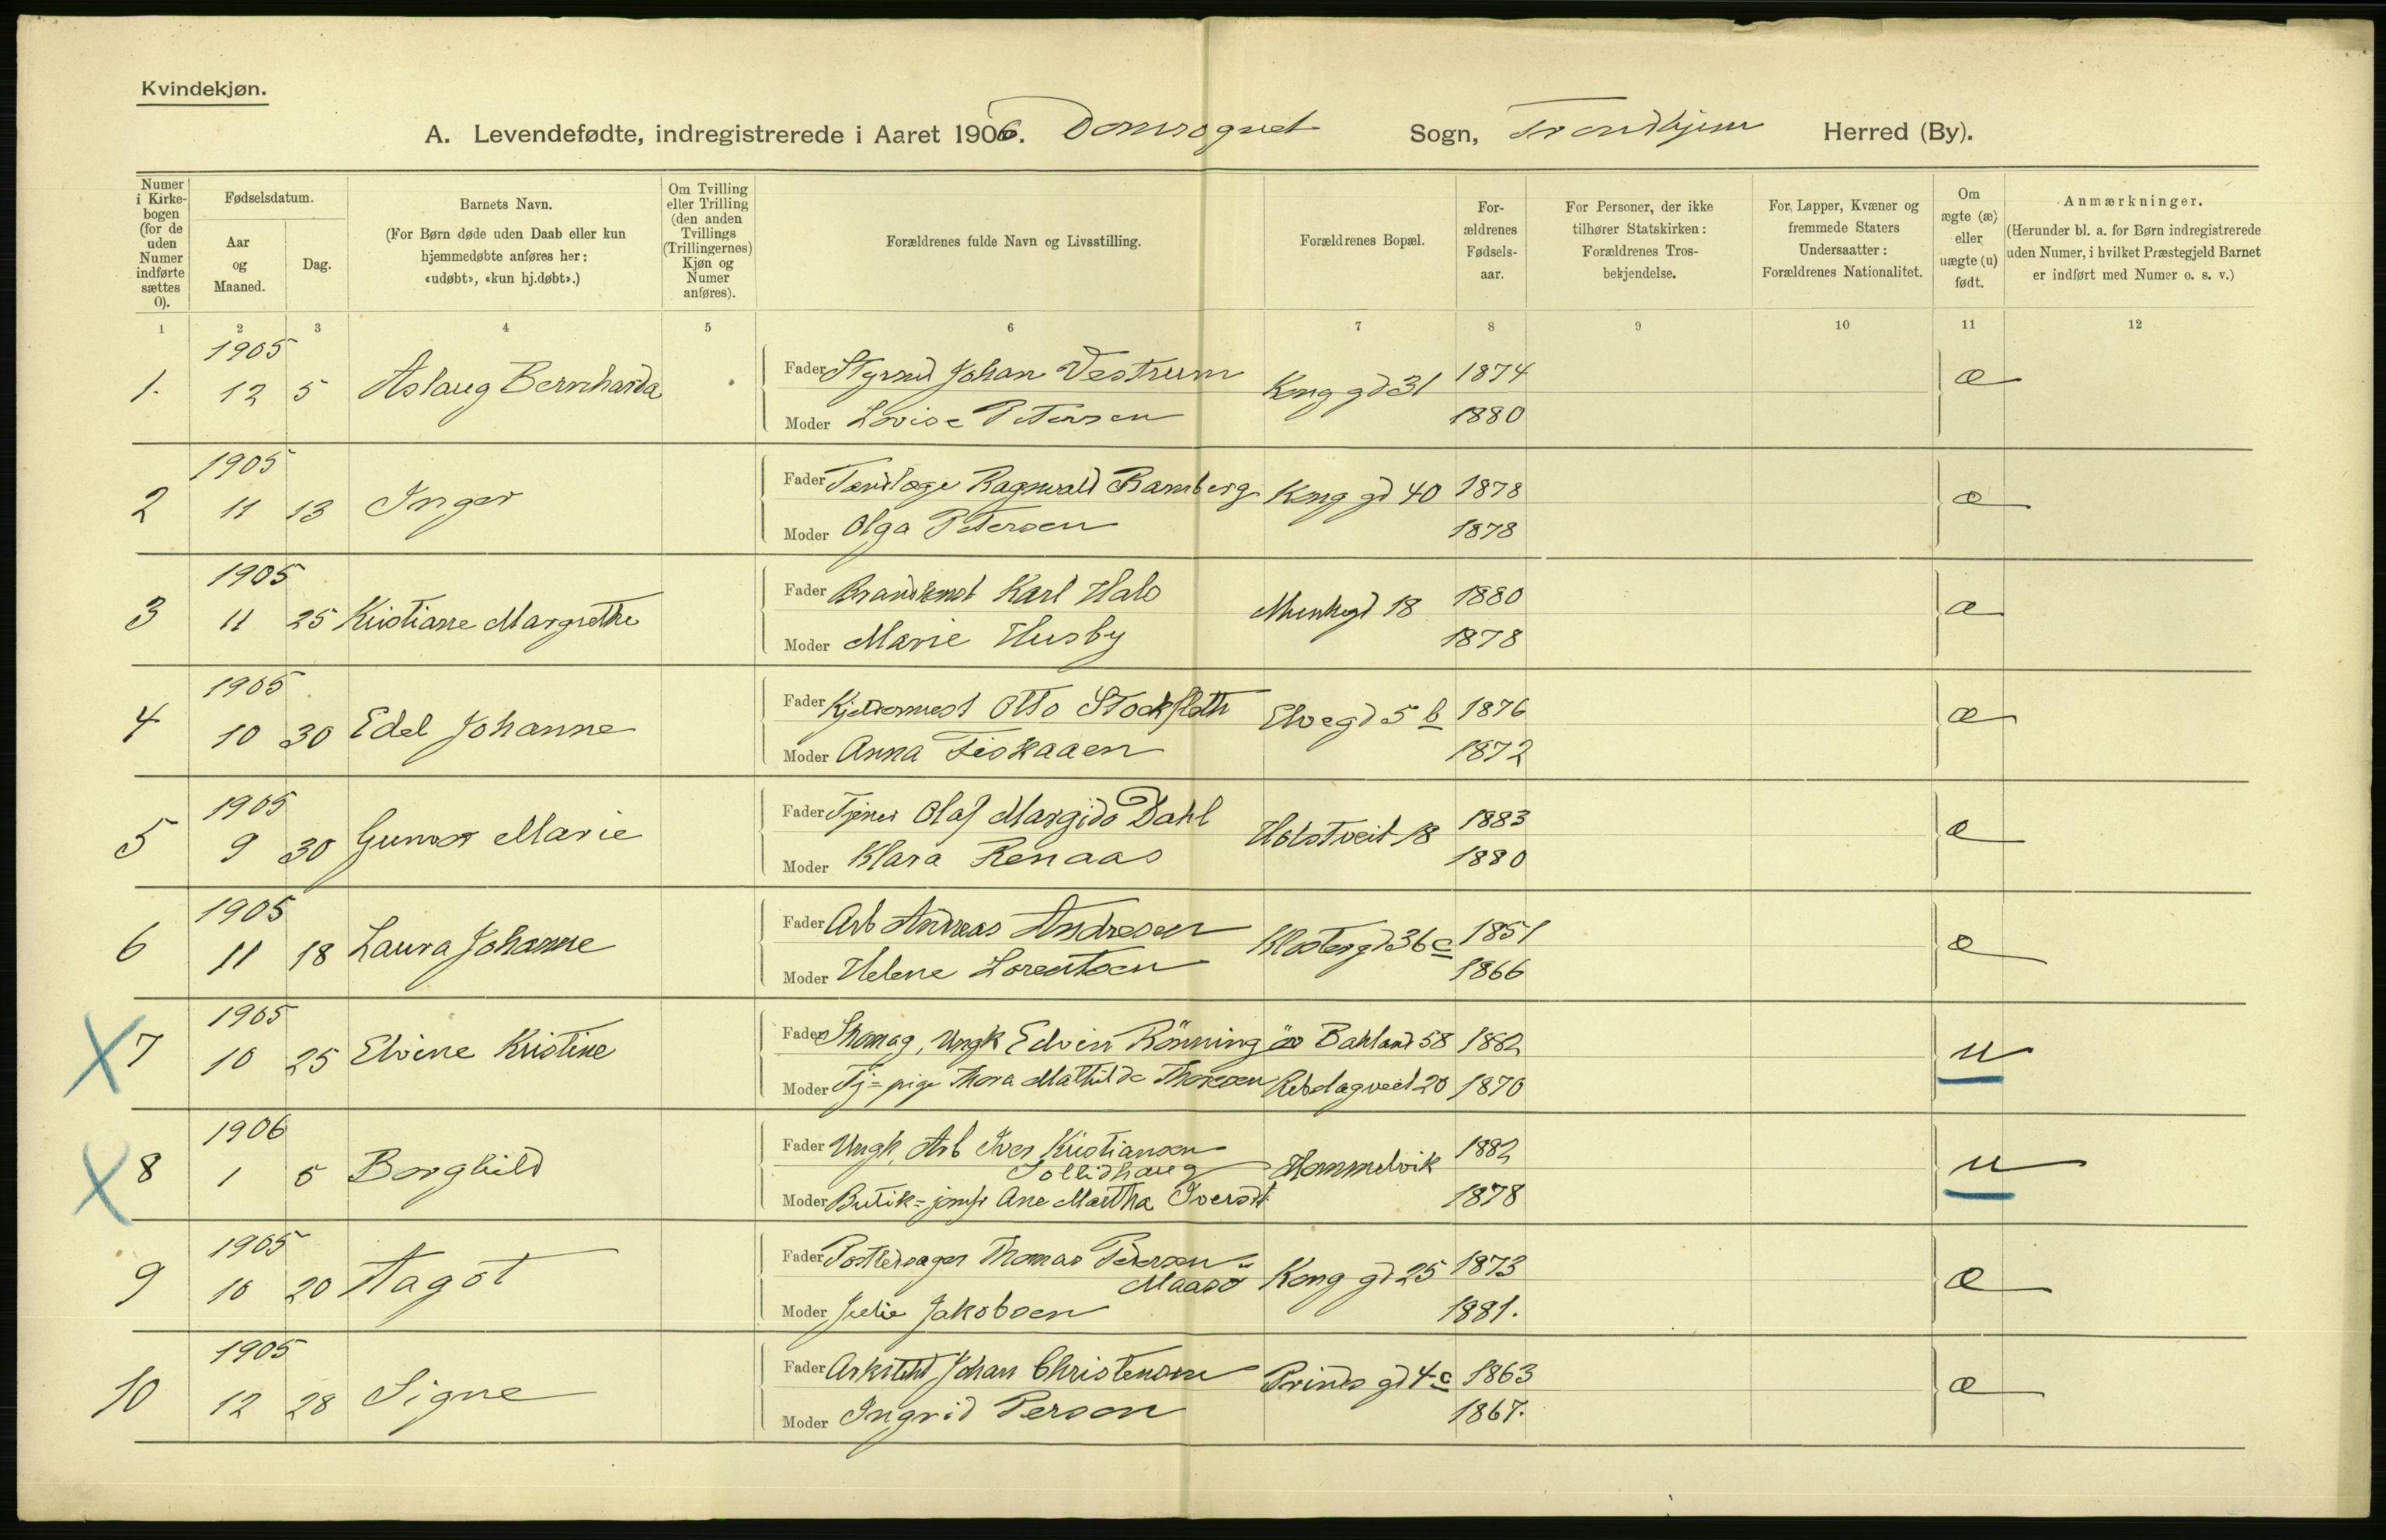 Kvindekjøn.
A. Levendefødte, indregistrerede i Aaret 1906. Domsognet Sogn, Trondhjem Herred (By).
Numer i Kirke-bogen (for de uden Numer indførte sættes 0).
Fødselsdatum.
Aar og Maaned.
Dag.
Barnets Navn.
(For Børn døde uden Daab eller kun hjemmedøbte anføres her: «udøbt», «kun hj.døbt».)
Om Tvilling eller Trilling (den anden Tvillings (Trillingernes) Kjøn og Numer anføres).
Forældrenes fulde Navn og Livsstilling.
Forældrenes Bopæl.
For-ældrenes Fødsels-aar.
For Personer, der ikke tilhører Statskirken: Forældrenes Tros-bekjendelse.
For Lapper, Kvæner og fremmede Staters Undersaatter: Forældrenes Nationalitet.
Om ægte (æ) eller uægte (u) født.
Anmærkninger.
(Herunder bl. a. for Børn indregistrerede uden Numer, i hvilket Præstegjeld Barnet er indført med Numer o. s. v.)
1 2 3 4 5 6 7 8 9 10 11 12
1905
1. 12 5 Aslaug Bernharda Fader Styrmd Johan Vestrum Kong gd 31 1874 æ
Moder Lovise Petersen 1880
1905
2 11 13 Inger Fader Tandlæge Ragnvald Bamberg Kong gd 40 1878 æ
Moder Olga Petersen 1878
1905
3 11 25 Kristiane Margrethe Fader Brandkonst Karl Hals Munkegd 18 1880 æ
Moder Marie Husby 1878
1905
4 10 30 Edel Johanne Fader Kjeldermest Otto Stockfleth Elvegd 5 b 1876 æ
Moder Anna Fiskaaen 1872
1905
5 9 30 Gunvor Marie Fader Tjener Olaf Margido Dahl Holstveit 18 1883 æ
Moder Klara Renaas 1880
1905
6 11 18 Laura Johanne Fader Arb Andreas Andresen Klostergd 36 c 1851 æ
Moder Helene Lorentsen 1866
1905
X 7 10 25 Elvine Kristine Fader Skomag, Ungk Edvin Rönning øv Bakland 58 1882 u
Moder Tj=pige Thora Mathilde Thoresen Rebslagveit 20 1870
1906
X 8 1 5 Borghild Fader Ungk, Arb Iver Kristiansen Hommelvik 1882 u
Sollidhaug
Moder Butik=jomfr Ane Martha Iversdt 1878
1905
9 10 20 Aagot Fader Postledsager Thomas Pedersen Kong gd 25 1873 æ
Maasö
Moder Julie Jakobsen 1881.
1905
10 12 28 Signe Fader Arkitekt Johan Christensen Prinds gd 4 c 1863 æ
Moder Ingrid Person 1867.